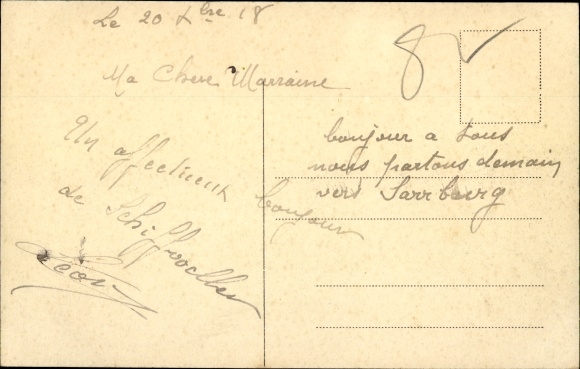 Le 20 Xbre 18
8
Ma Chere Marraine
Un affectueux bonjour
de Schiffweiller
Léon
bonjour a tous
nous partons demain
vers Sarrbourg